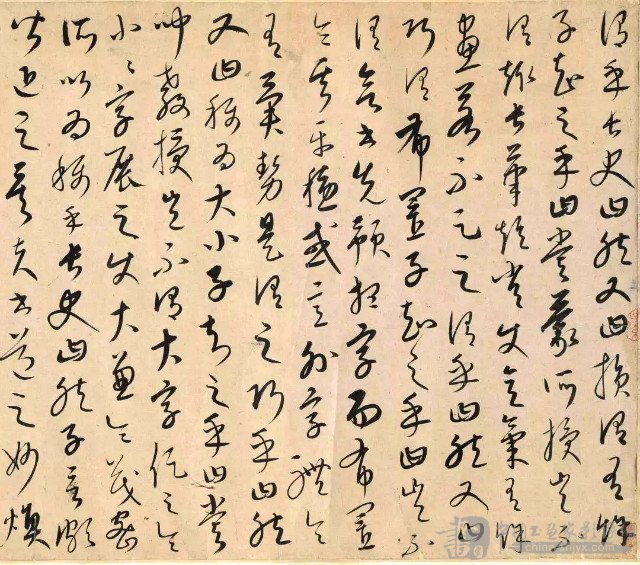 謂乎長史曰然又曰損謂有餘
子知之乎曰嘗蒙所授豈不
謂趣長筆短常使意氣有餘
畫若不足之謂乎曰然又曰
巧謂布置子知之乎曰豈不
謂欲書先預想字而布置
令其平穩或意外字體令
有異勢是謂之巧乎曰然
又曰稱為大小子知之乎曰嘗
教授豈不謂大字促之令
小小字展之使大兼令茂密
所以為稱乎長史曰然子言頗
皆近之矣夫書道之妙煥